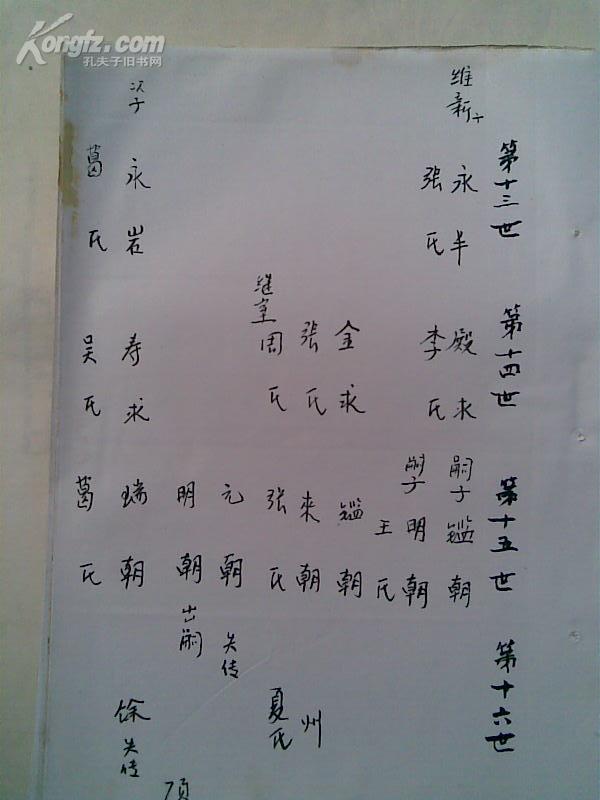 Kongfz.com
孔夫子旧书网
第十三世 第十四世 第十五世 第十六世
维新子 永半 殿求 嗣子鑑朝
张氏 李氏 嗣子明朝
王氏
金求 鑑朝
張氏 來朝 州
继室周氏 张氏 夏氏
元朝 失传
明朝 出嗣
次子 永岩 寿求 瑞朝 馀失传
葛氏 吴氏 葛氏
项